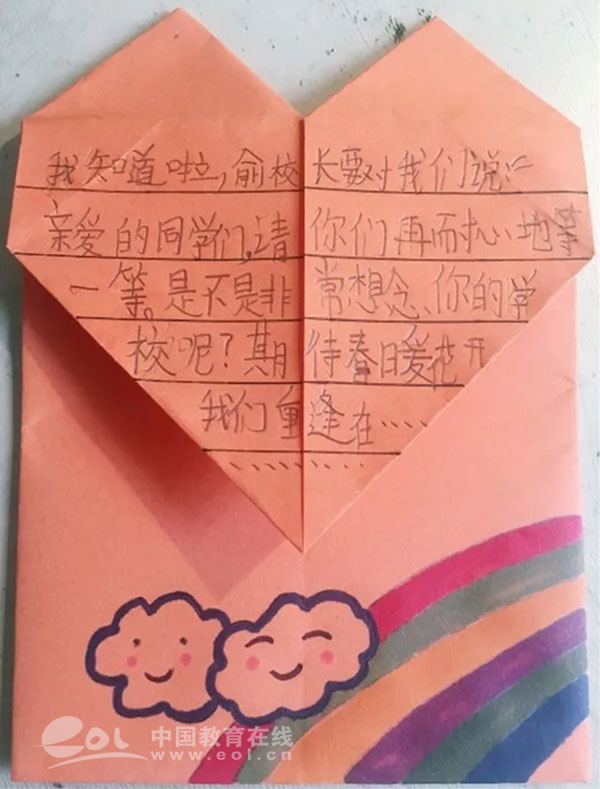 我知道啦,俞校长要对我们说:
亲爱的同学们,请你们再耐心地等
一等。是不是非常想念、你的学
校呢?期待春暖花开
我们重逢在……
…………
eol 中国教育在线
www.eol.cn